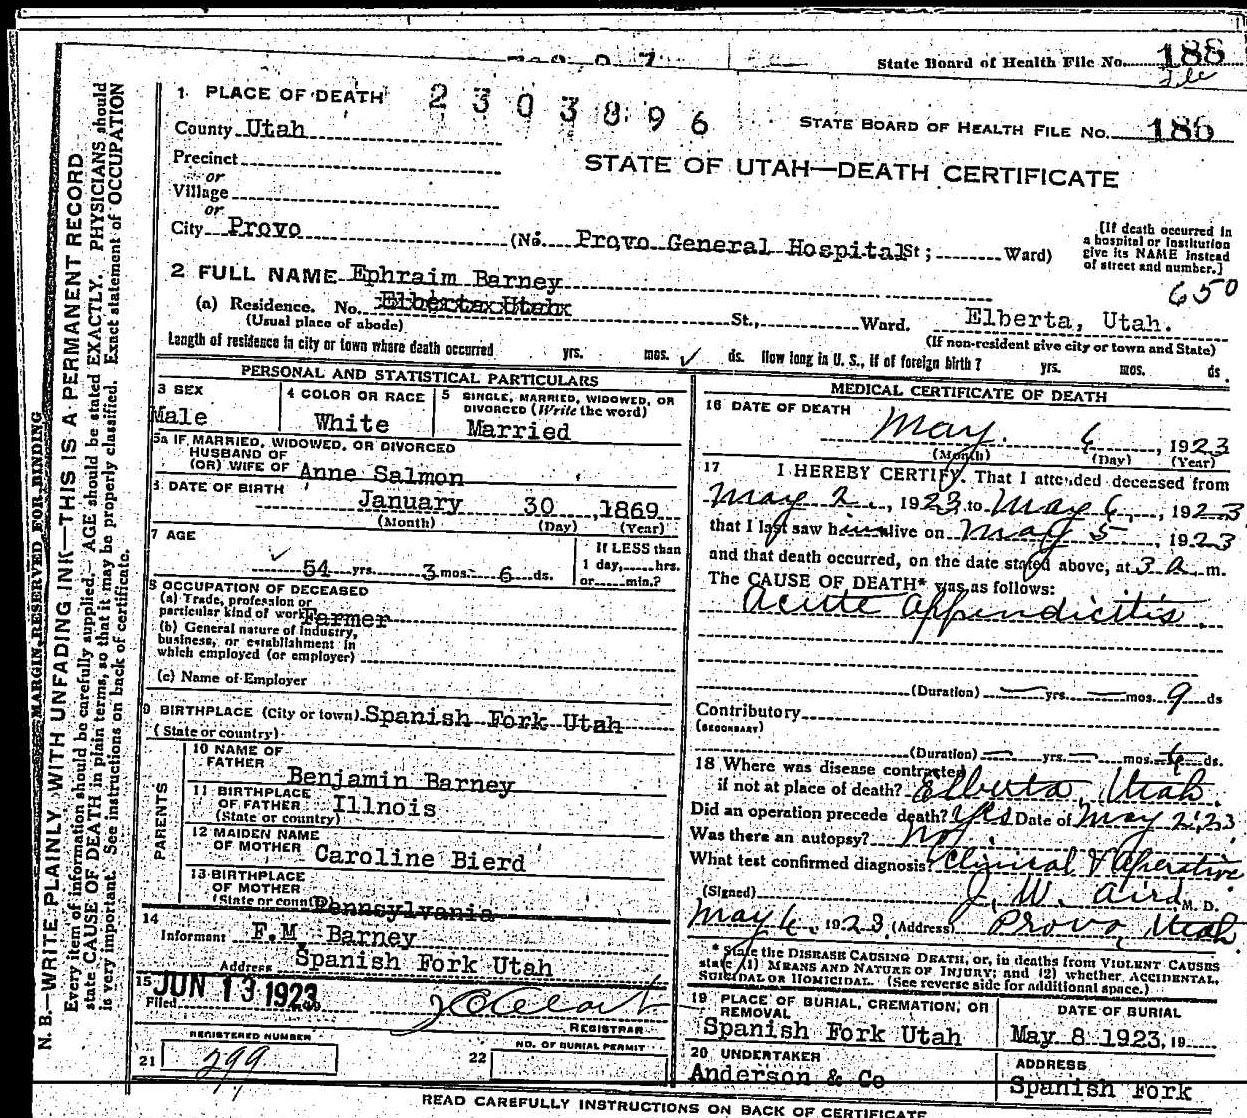 State Board of Health File No. 188
1 PLACE OF DEATH 2303896
STATE BOARD OF HEALTH FILE No. 186
County Utah
STATE OF UTAH—DEATH CERTIFICATE
Precinct
or
Village
or
City Provo (No. Provo General Hospital St; Ward)
[If death occurred in
a hospital or institution
give its NAME instead
of street and number.]
650
2 FULL NAME Ephraim Barney
(a) Residence. No. Elberta, Utah St., Ward. Elberta, Utah.
(Usual place of abode) (If non-resident give city or town and State)
Length of residence in city or town where death occurred yrs. mos. ds. How long in U. S., if of foreign birth? yrs. mos. ds.
PERSONAL AND STATISTICAL PARTICULARS
3 SEX
Male
4 COLOR OR RACE
White
5 SINGLE, MARRIED, WIDOWED, OR
DIVORCED (Write the word)
Married
5a IF MARRIED, WIDOWED, OR DIVORCED
HUSBAND OF
(OR) WIFE OF Anne Salmon
6 DATE OF BIRTH
January 30, 1869
(Month) (Day) (Year)
7 AGE
54 yrs. 3 mos. 6 ds.
If LESS than
1 day, hrs.
or min.?
8 OCCUPATION OF DECEASED
(a) Trade, profession or
particular kind of work Farmer
(b) General nature of industry,
business, or establishment in
which employed (or employer)
(c) Name of Employer
9 BIRTHPLACE (City or town) Spanish Fork Utah
(State or country)
PARENTS
10 NAME OF
FATHER
Benjamin Barney
11 BIRTHPLACE
OF FATHER Illnois
(State or country)
12 MAIDEN NAME
OF MOTHER Caroline Bierd
13 BIRTHPLACE
OF MOTHER
(State or country) Pennsylvania
14
Informant F.M. Barney
Address Spanish Fork Utah
15 JUN 13 1923
Filed
REGISTRAR
REGISTERED NUMBER
21 299
NO. OF BURIAL PERMIT
22
MEDICAL CERTIFICATE OF DEATH
16 DATE OF DEATH
May 6, 1923
(Month) (Day) (Year)
17 I HEREBY CERTIFY, That I attended deceased from
May 2, 1923, to May 6, 1923
that I last saw him alive on May 5, 1923
and that death occurred, on the date stated above, at 3 a m.
The CAUSE OF DEATH* was as follows:
Acute Appendicitis.
(Duration) — yrs. — mos. 9 ds
Contributory
(SECONDARY)
(Duration) — yrs. — mos. ds.
18 Where was disease contracted
if not at place of death? Elberta, Utah.
Did an operation precede death? Yes Date of May 2, '23
Was there an autopsy? No.
What test confirmed diagnosis? Clinical & Operative
(Signed) J. W. Aird M. D.
May 6, 1923. (Address) Provo, Utah.
* State the DISEASE CAUSING DEATH, or, in deaths from VIOLENT CAUSES
state (1) MEANS AND NATURE OF INJURY; and (2) whether ACCIDENTAL,
SUICIDAL OR HOMICIDAL. (See reverse side for additional space.)
19 PLACE OF BURIAL, CREMATION, OR
REMOVAL
Spanish Fork Utah
DATE OF BURIAL
May 8 1923, 19
20 UNDERTAKER
Anderson & Co
ADDRESS
Spanish Fork
READ CAREFULLY INSTRUCTIONS ON BACK OF CERTIFICATE
MARGIN RESERVED FOR BINDING
N. B.—WRITE PLAINLY, WITH UNFADING INK—THIS IS A PERMANENT RECORD
Every item of information should be carefully supplied. AGE should be stated EXACTLY. PHYSICIANS should
state CAUSE OF DEATH in plain terms, so that it may be properly classified. Exact statement of OCCUPATION
is very important. See instructions on back of certificate.